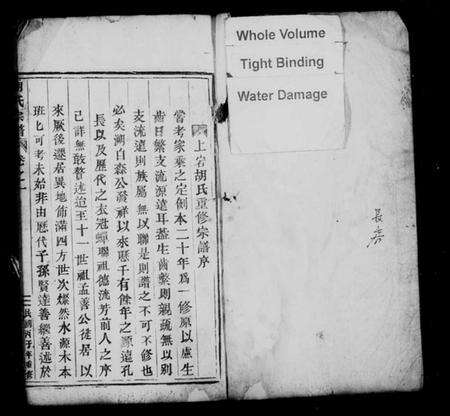 Whole Volume
Tight Binding
Water Damage
上宕胡氏重修宗譜序
嘗考家乘之定創本二十年爲一修原以盧生
齒日繁支流源遠耳葢生齒繁則親疏無以別
支流遠則族屬無以聯是則譜之不可不修也
必矣湖自森公發祥以來歷千有餘年之源遠孔
長以及歷代之衣冠蟬聯祖德流芳前人之序
己詳無敢贅述迨至十一世祖孟善公徒居以
來厥後遷居異地俻滿四方世次燦然水源木本
班匕可考未始非由歷代子孫賢達善繼善述於
胡氏宗譜
卷之一